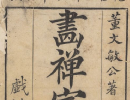 董文敏公著
畫禪室
戲